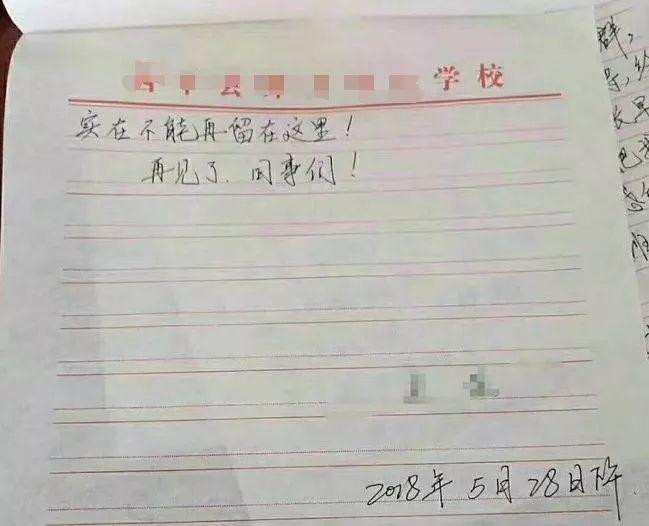 学校
实在不能再留在这里！
再见了.同事们！
2018年5月28日下午